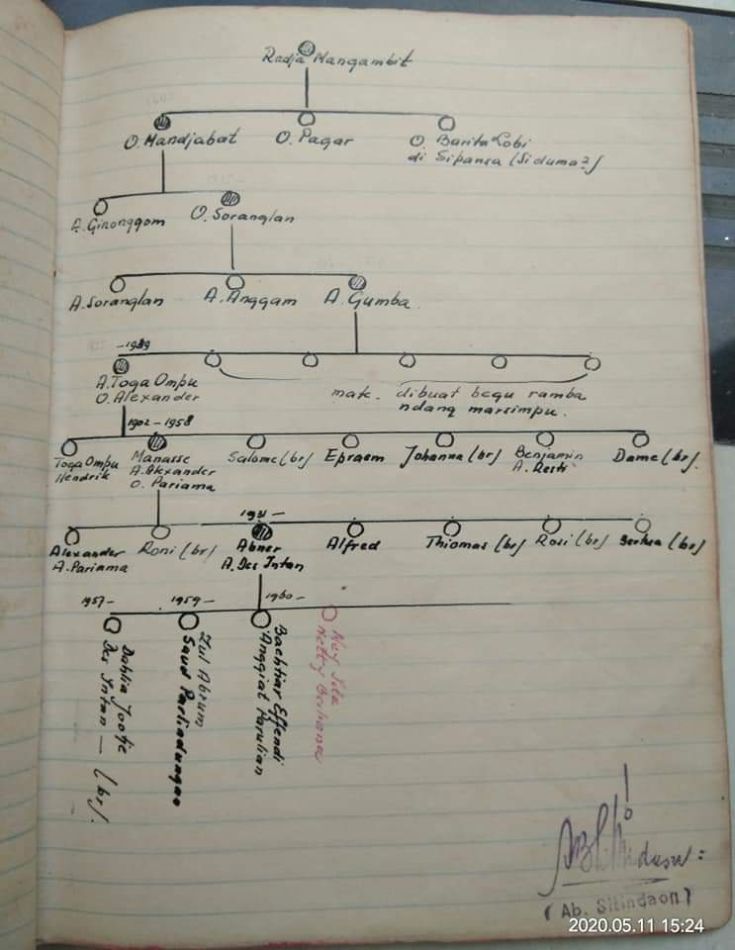 Radja Mangambit
O. Mandjabat
O. Pagar
O. Barita Lobi
di Sipansa (Siduma?)
A. Ginonggom
O. Soranglan
A. Soranglan
A. Anggam
A. Gumba
A. Toga Ompu
O. Alexander
mate. dibuat begu ramba
ndang marsimpu.
1902 - 1958
Toga Ompu
Hendrik
Manasse
A. Alexander
O. Pariama
Salome (br)
Epraem
Johanna (br)
Benjamin
A. Resti
Dame (br).
1931 -
Alexander
A. Pariama
Roni (br)
Abner
A. Des Intan
Alfred
Thiomas (br)
Rosi (br)
Berliua (br)
1957-
1959 -
1960 -
Dahlia Jootje
Des Intan — (br).
Zul Abrum
Saud Parlindungan
Bachtiar Effendi
Anggiat Parulian
( Ab. Sitindaon )
2020.05.11 15:24